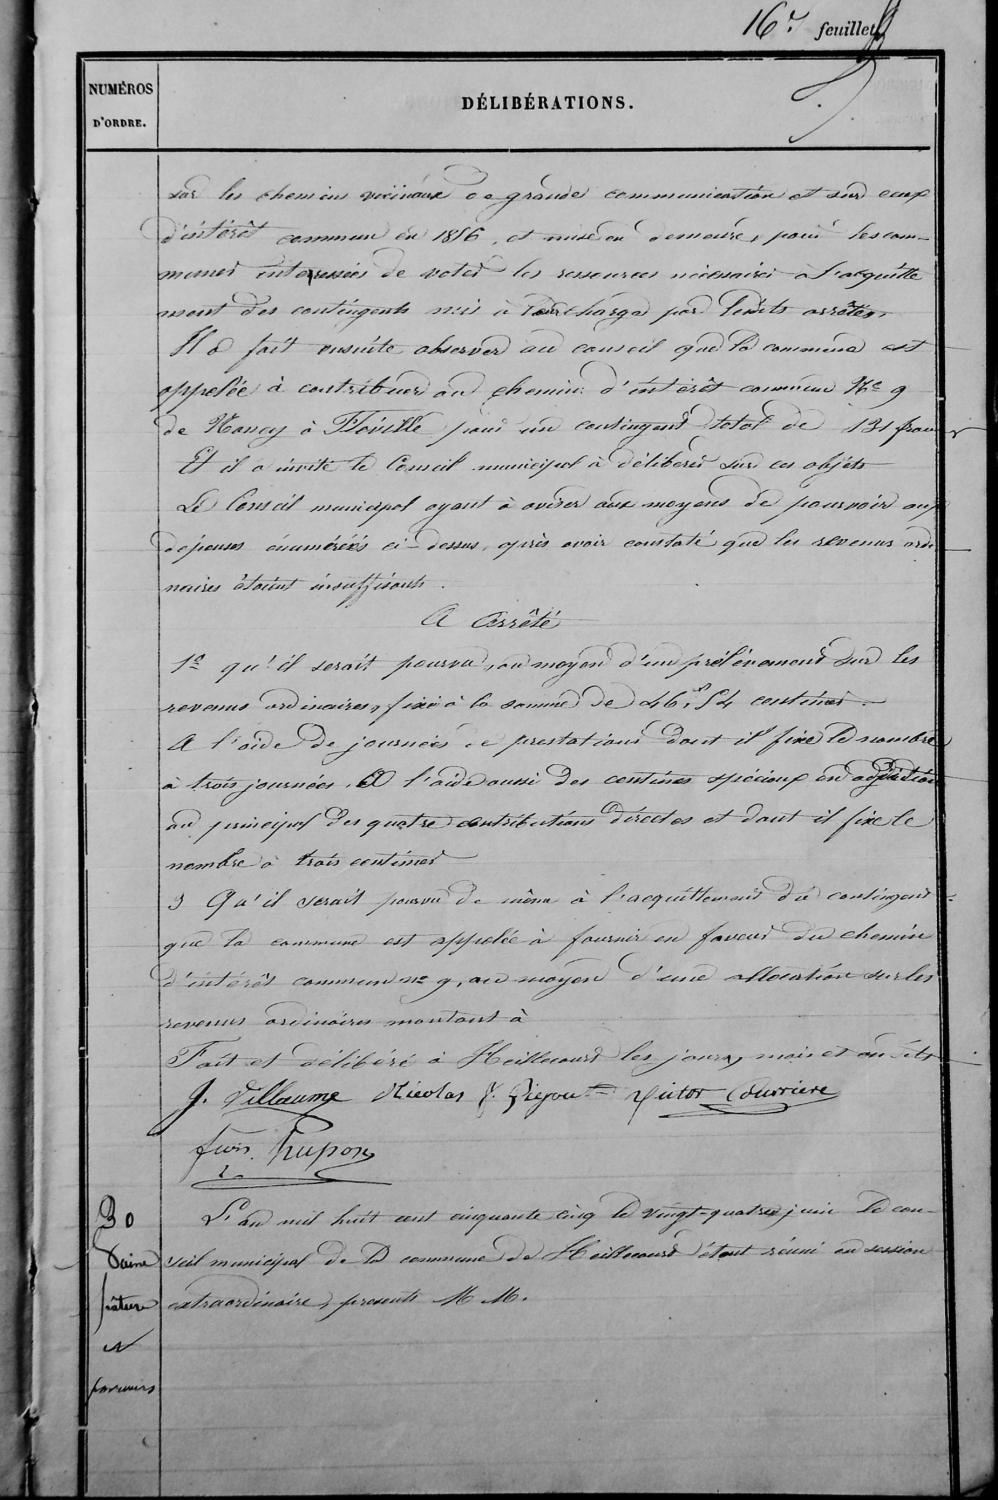 16e feuillet
NUMÉROS
D'ORDRE.
DÉLIBÉRATIONS.
sur les chemins vicinaux de grande communication et sur ceux
d'intérêt commun en 1856, et mise en demeure, pour les com-
munes intéressées de voter les ressources nécessaires à l'acquitte
ment des contingents mis à leur charge par lesdits arrêtés,
Il a fait ensuite observer au conseil que la commune est
appelée à contribuer au chemin d'intérêt commun No 9
de Nancy à pour un contingent total de 131 francs
Et il a invité le Conseil municipal à délibérer sur ces objets
Le Conseil municipal ayant à aviser aux moyens de pourvoir aux
dépenses énumérées ci-dessus, après avoir constaté que les revenus ordi
naires étaient insuffisants.
A Arrêté
1o qu'il serait pourvu, au moyen d'un prélèvement sur les
revenus ordinaires, fixé à la somme de 46f,54 centimes.
A l'aide de journées de prestations dont il fixe le nombre
à trois journées, Et à l'aide aussi des centimes spéciaux en addition
au principal des quatre contributions directes et dont il fixe le
nombre à trois centimes
3 Qu'il serait pourvu de même à l'acquittement du contingent
que la commune est appelée à fournir en faveur du chemin
d'intérêt commun no 9, au moyen d'une allocation sur les
revenus ordinaires montant à
Fait et délibéré à Heillecourt les jours, mois et an dits
J. Villaume Nicolas Victor Courrière
30
L'an mil huit cent cinquante cinq le vingt-quatre juin le con-
Vaine
seil municipal de la commune de Heillecourt étant réuni en session
pâture
extraordinaire, présents M M.
et
parcours